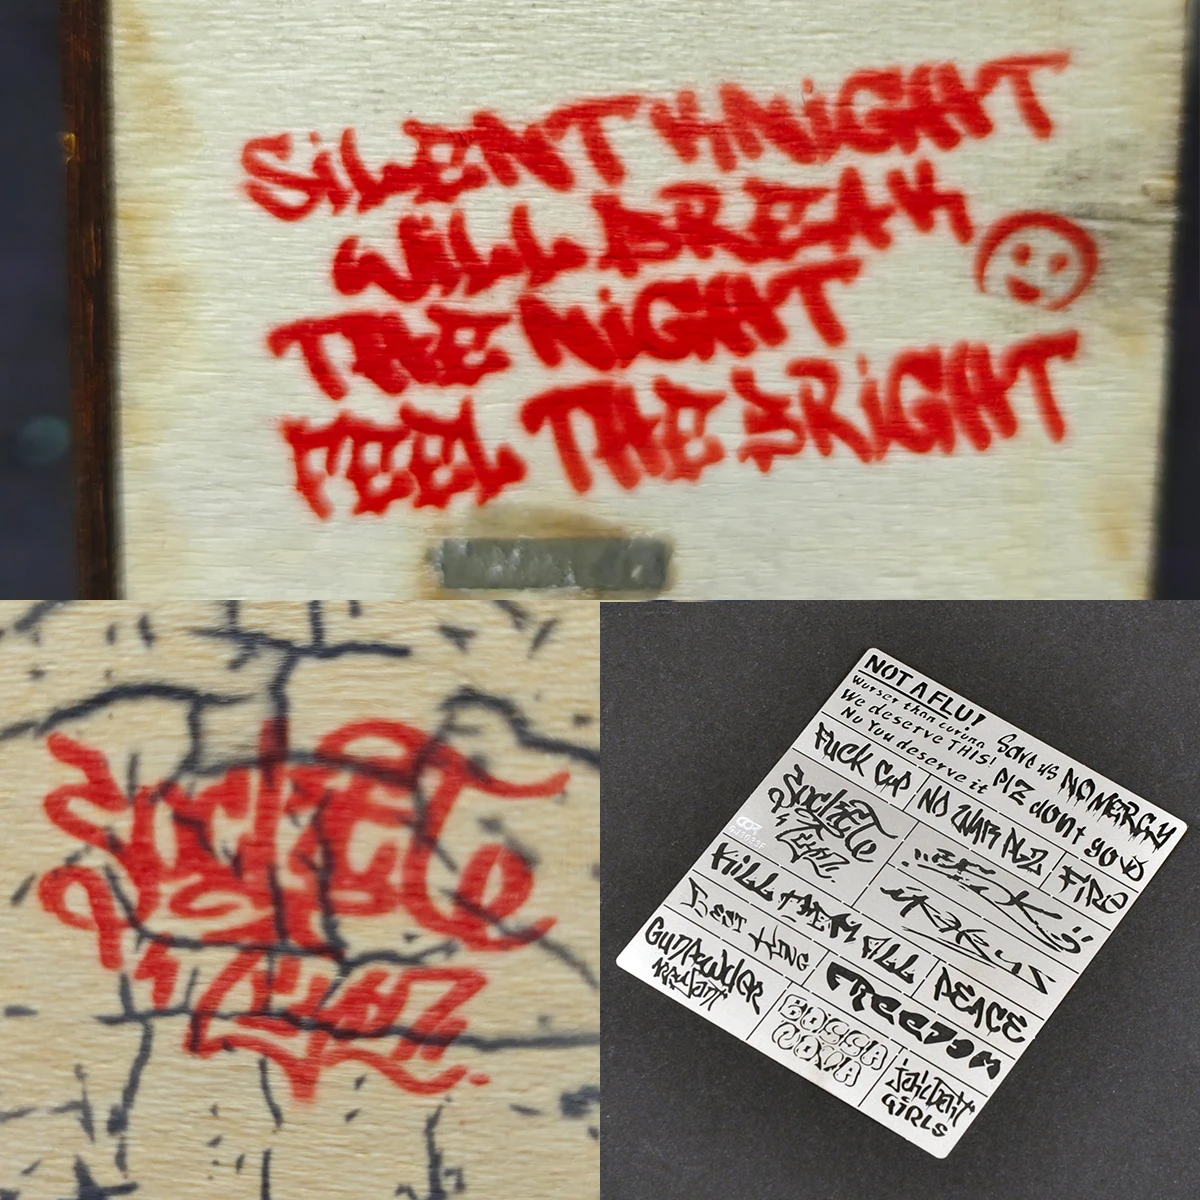 SiLENT KNiGHT
WiLL BREAK
THE NiGHT
FEEL THE BRiGHT
Society
NOT A FLU!
Worser than corona
We deserve THIS!
No You deserve it
Save us
PLZ don't go
NO MERCY
FUCK COP
NO WAR PLZ
FiRE
Society
KiLL THEM ALL
PEACE
GUNPOWDER
FREEDOM
BOSSA
NOVA
GiRLS